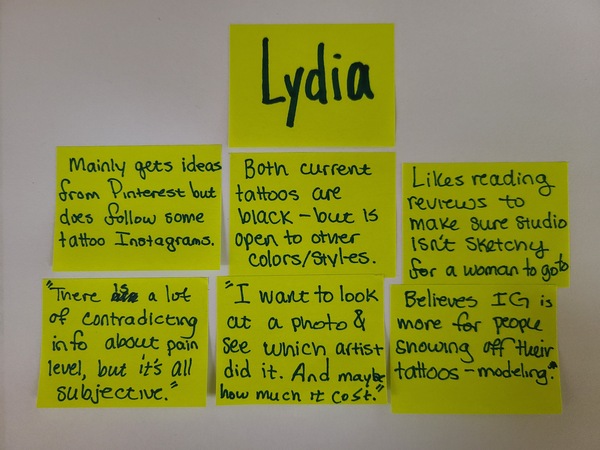 Lydia
Mainly gets ideas
from Pinterest but
does follow some
tattoo Instagrams.
Both current
tattoos are
black - but is
open to other
colors/styles.
Likes reading
reviews to
make sure studio
isn't sketchy
for a woman to go to
"There is a lot
of contradicting
info about pain
level, but it's all
subjective."
"I want to look
at a photo &
see which artist
did it. And maybe
how much it cost."
Believes IG is
more for people
showing off their
tattoos - modeling."